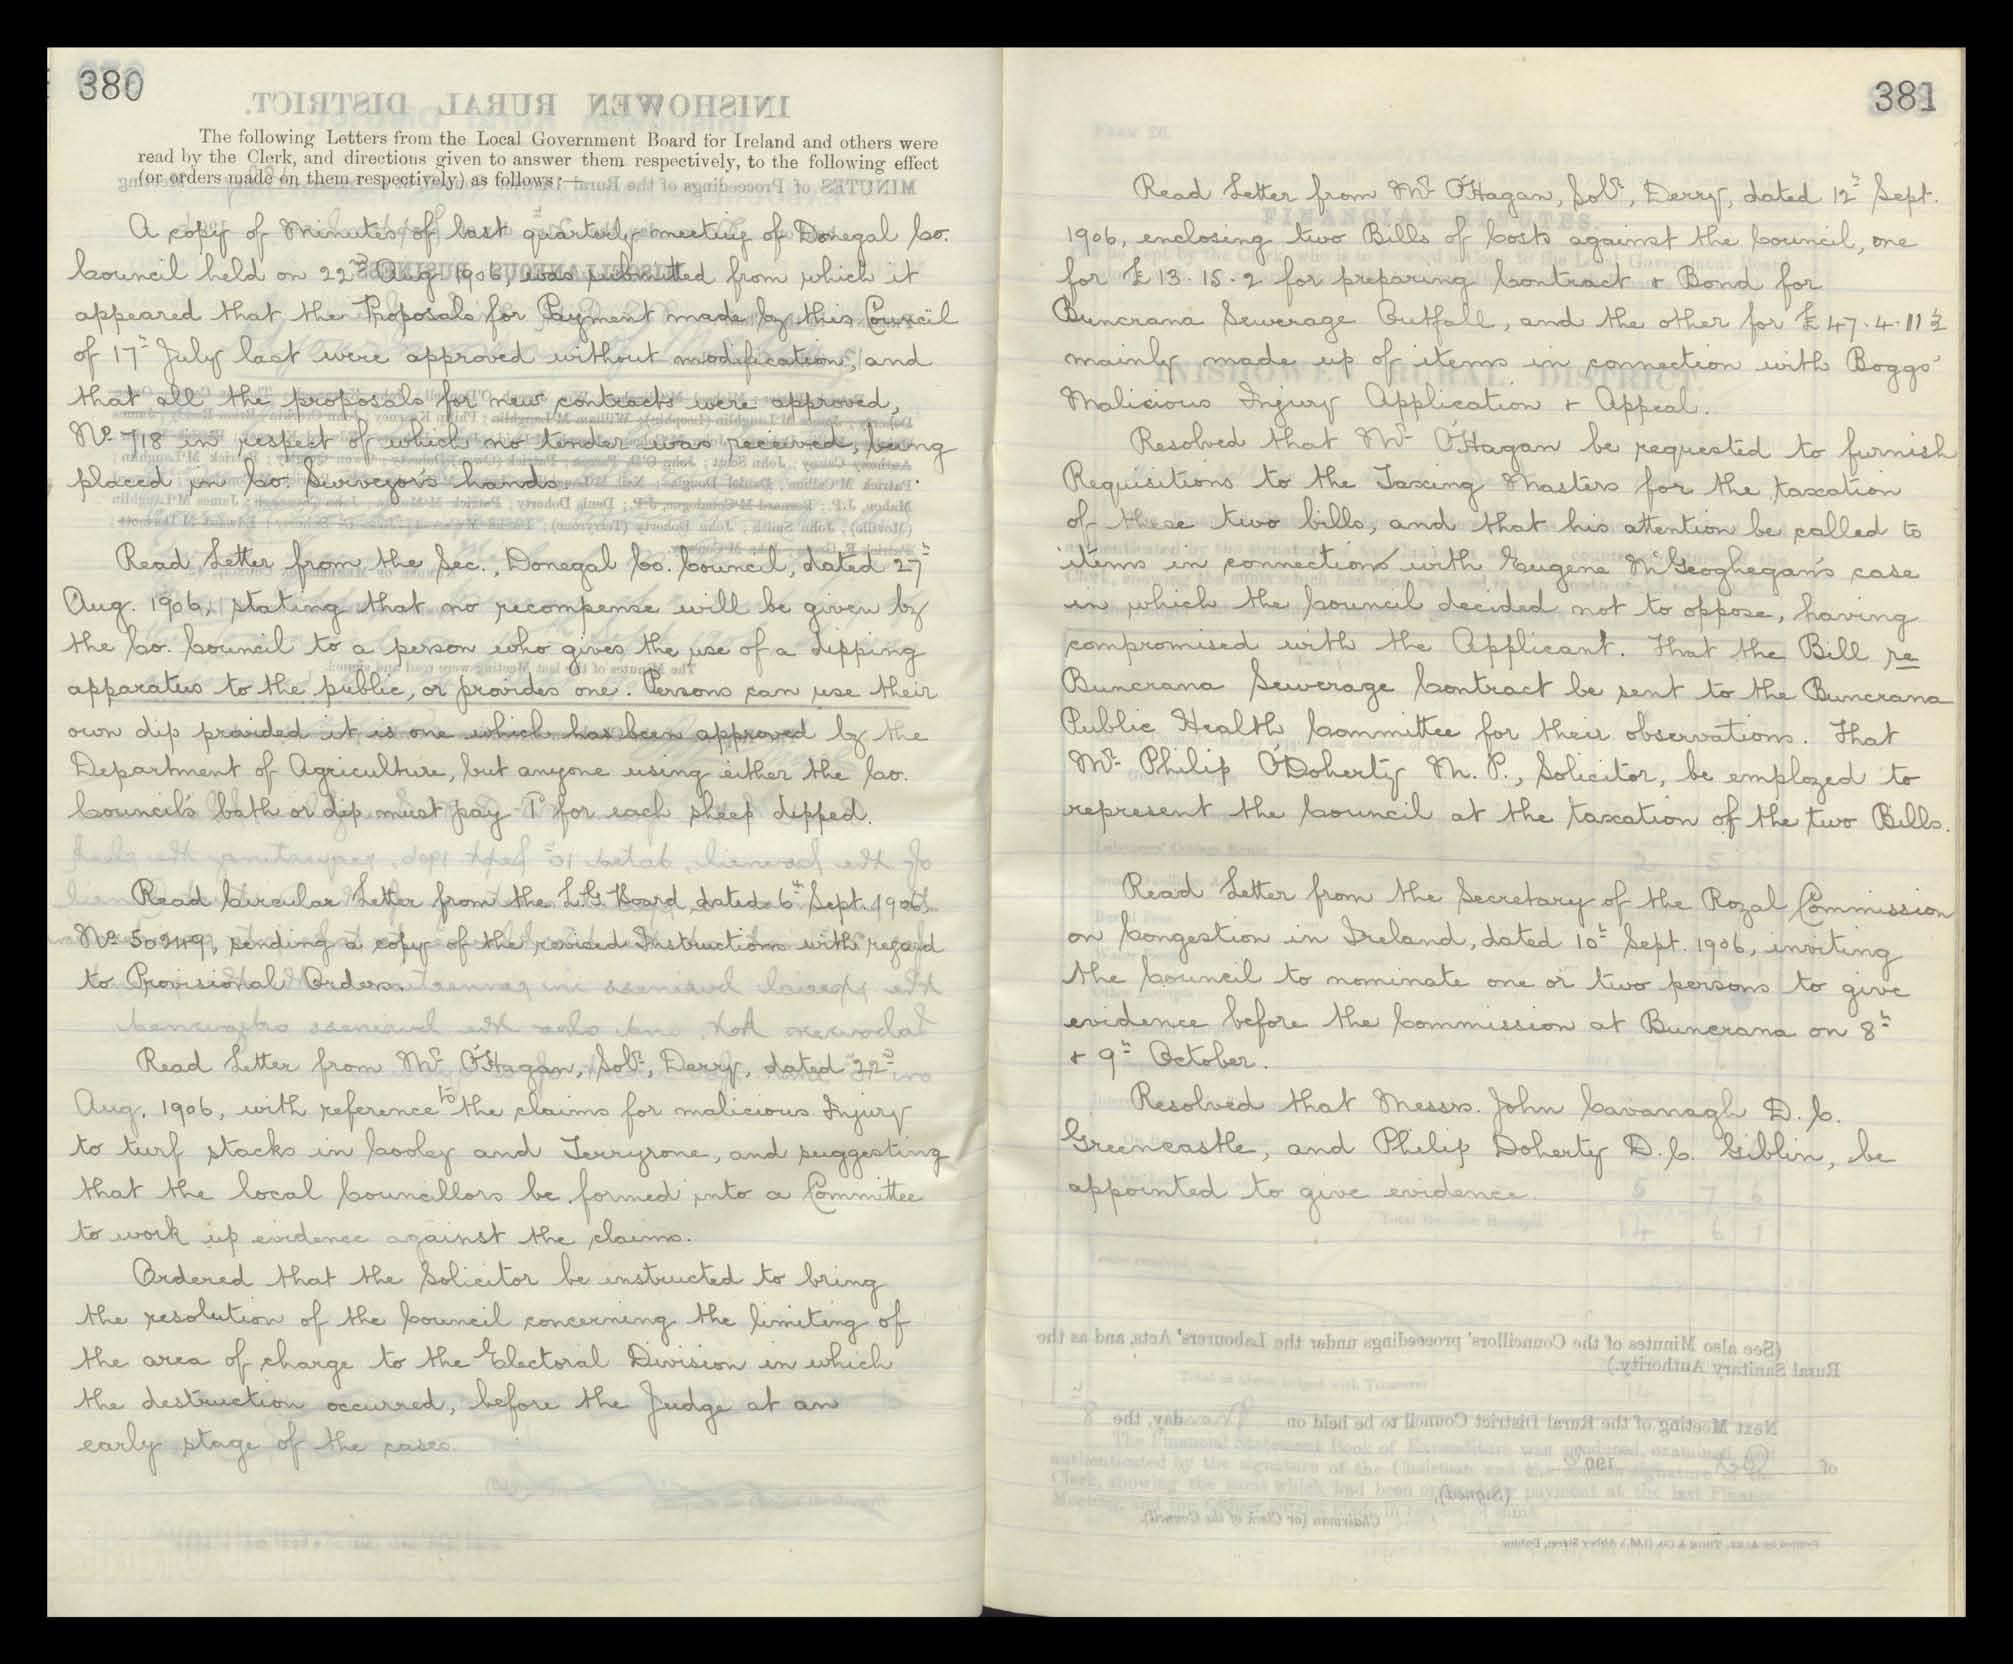 380
The following Letters from the Local Government Board for Ireland and others were
read by the Clerk, and directions given to answer them respectively, to the following effect
(or orders made on them respectively) as follows :—
A copy of Minutes of last quarterly meeting of Donegal Co.
Council held on 22nd Aug 1906, was submitted from which it
appeared that the Proposals for Payment made by this Council
of 17th July last were approved without modification, and
that all the proposals for new contracts were approved,
No 718 in respect of which no tender was received, being
placed in Co. Surveyor's hands.
Read Letter from the Sec., Donegal Co. Council, dated 27th
Aug. 1906, stating that no recompense will be given by
the Co. Council to a person who gives the use of a dipping
apparatus to the public, or provides one. Persons can use their
own dip provided it is one which has been approved by the
Department of Agriculture, but anyone using either the Co.
Council's bath or dip must pay 1d for each sheep dipped.
Read Circular Letter from the L.G. Board, dated 6th Sept. 1906
No 50249, sending a copy of the revised Instructions with regard
to Provisional Orders.
Read Letter from Mr O'Hagan, Solr, Derry, dated 22nd
Aug. 1906, with reference to the claims for malicious Injury
to turf stacks in Cooley and Terryrone, and suggesting
that the local Councillors be formed into a Committee
to work up evidence against the claims.
Ordered that the Solicitor be instructed to bring
the resolution of the Council concerning the limiting of
the area of charge to the Electoral Division in which
the destruction occurred, before the Judge at an
early stage of the cases.
381
Read Letter from Mr O'Hagan, Solr, Derry, dated 12th Sept.
1906, enclosing two Bills of Costs against the Council, one
for £13.15.2 for preparing Contract & Bond for
Buncrana Sewerage Outfall, and the other for £47.4.11½
mainly made up of items in connection with Boggs'
Malicious Injury Application & Appeal.
Resolved that Mr O'Hagan be requested to furnish
Requisitions to the Taxing Masters for the taxation
of these two bills, and that his attention be called to
items in connection with Eugene McGeoghegan's case
in which the Council decided not to oppose, having
compromised with the Applicant. That the Bill re
Buncrana Sewerage Contract be sent to the Buncrana
Public Health Committee for their observations. That
Mr Philip O'Doherty M.P., Solicitor, be employed to
represent the Council at the taxation of the two Bills.
Read Letter from the Secretary of the Royal Commission
on Congestion in Ireland, dated 10th Sept. 1906, inviting
the Council to nominate one or two persons to give
evidence before the Commission at Buncrana on 8th
& 9th October.
Resolved that Messrs. John Cavanagh D.C.
Greencastle, and Philip Doherty D.C. Giblin, be
appointed to give evidence